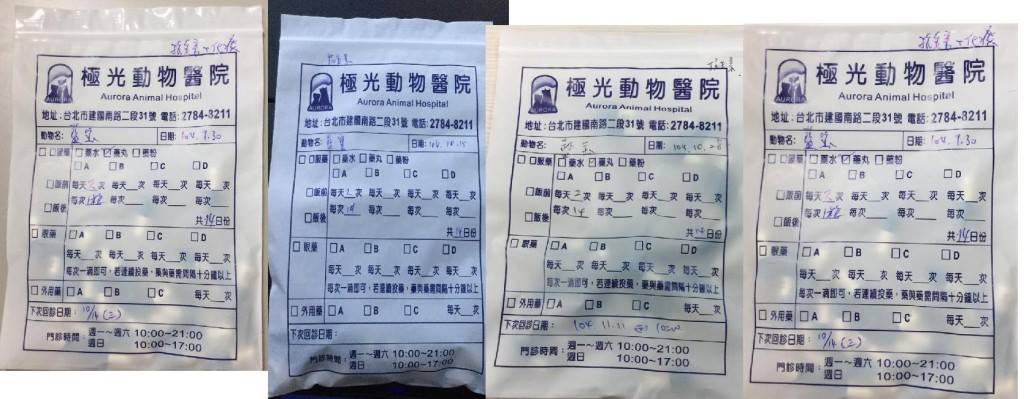 極光動物醫院
Aurora Animal Hospital
AURORA
地址:台北市建國南路二段31號 電話:2784-8211
動物名: 日期:104. 9.30
□口服藥 □藥水 ☑藥丸 □藥粉
□A □B □C □D
□飯前 每天二次 每天__次 每天__次 每天__次
□飯後 每次 每次__ 每次__ 每次__
共14日份
□眼藥 □A □B □C □D
每天__次 每天__次 每天__次 每天__次
每次一滴即可,若連續投藥,藥與藥需間隔十分鐘以上
□外用藥 □A □B □C 每天__次
下次回診日期: 10/14 (三)
門診時間: 週一~週六 10:00~21:00
週日 10:00~17:00
極光動物醫院
Aurora Animal Hospital
AURORA
地址:台北市建國南路二段31號 電話:2784-8211
動物名: 日期:104.10.15
□口服藥 □藥水 □藥丸 □藥粉
□A □B □C □D
□飯前 每天二次 每天__次 每天__次 每天__次
□飯後 每次1# 每次__ 每次__ 每次__
共14日份
□眼藥 □A □B □C □D
每天__次 每天__次 每天__次 每天__次
每次一滴即可,若連續投藥,藥與藥需間隔十分鐘以上
□外用藥 □A □B □C 每天__次
下次回診日期:
門診時間: 週一~週六 10:00~21:00
週日 10:00~17:00
極光動物醫院
Aurora Animal Hospital
AURORA
地址:台北市建國南路二段31號 電話:2784-8211
動物名: 日期:104.10.28
□口服藥 □藥水 □藥丸 □藥粉
□A □B □C □D
□飯前 每天二次 每天__次 每天__次 每天__次
□飯後 每次1# 每次__ 每次__ 每次__
共14日份
□眼藥 □A □B □C □D
每天__次 每天__次 每天__次 每天__次
每次一滴即可,若連續投藥,藥與藥需間隔十分鐘以上
□外用藥 □A □B □C 每天__次
下次回診日期: 104 11.11
門診時間: 週一~週六 10:00~21:00
週日 10:00~17:00
極光動物醫院
Aurora Animal Hospital
AURORA
地址:台北市建國南路二段31號 電話:2784-8211
動物名: 日期:104. 9.30
□口服藥 □藥水 ☑藥丸 □藥粉
□A □B □C □D
□飯前 每天二次 每天__次 每天__次 每天__次
□飯後 每次 每次__ 每次__ 每次__
共14日份
□眼藥 □A □B □C □D
每天__次 每天__次 每天__次 每天__次
每次一滴即可,若連續投藥,藥與藥需間隔十分鐘以上
□外用藥 □A □B □C 每天__次
下次回診日期: 10/14 (三)
門診時間: 週一~週六 10:00~21:00
週日 10:00~17:00